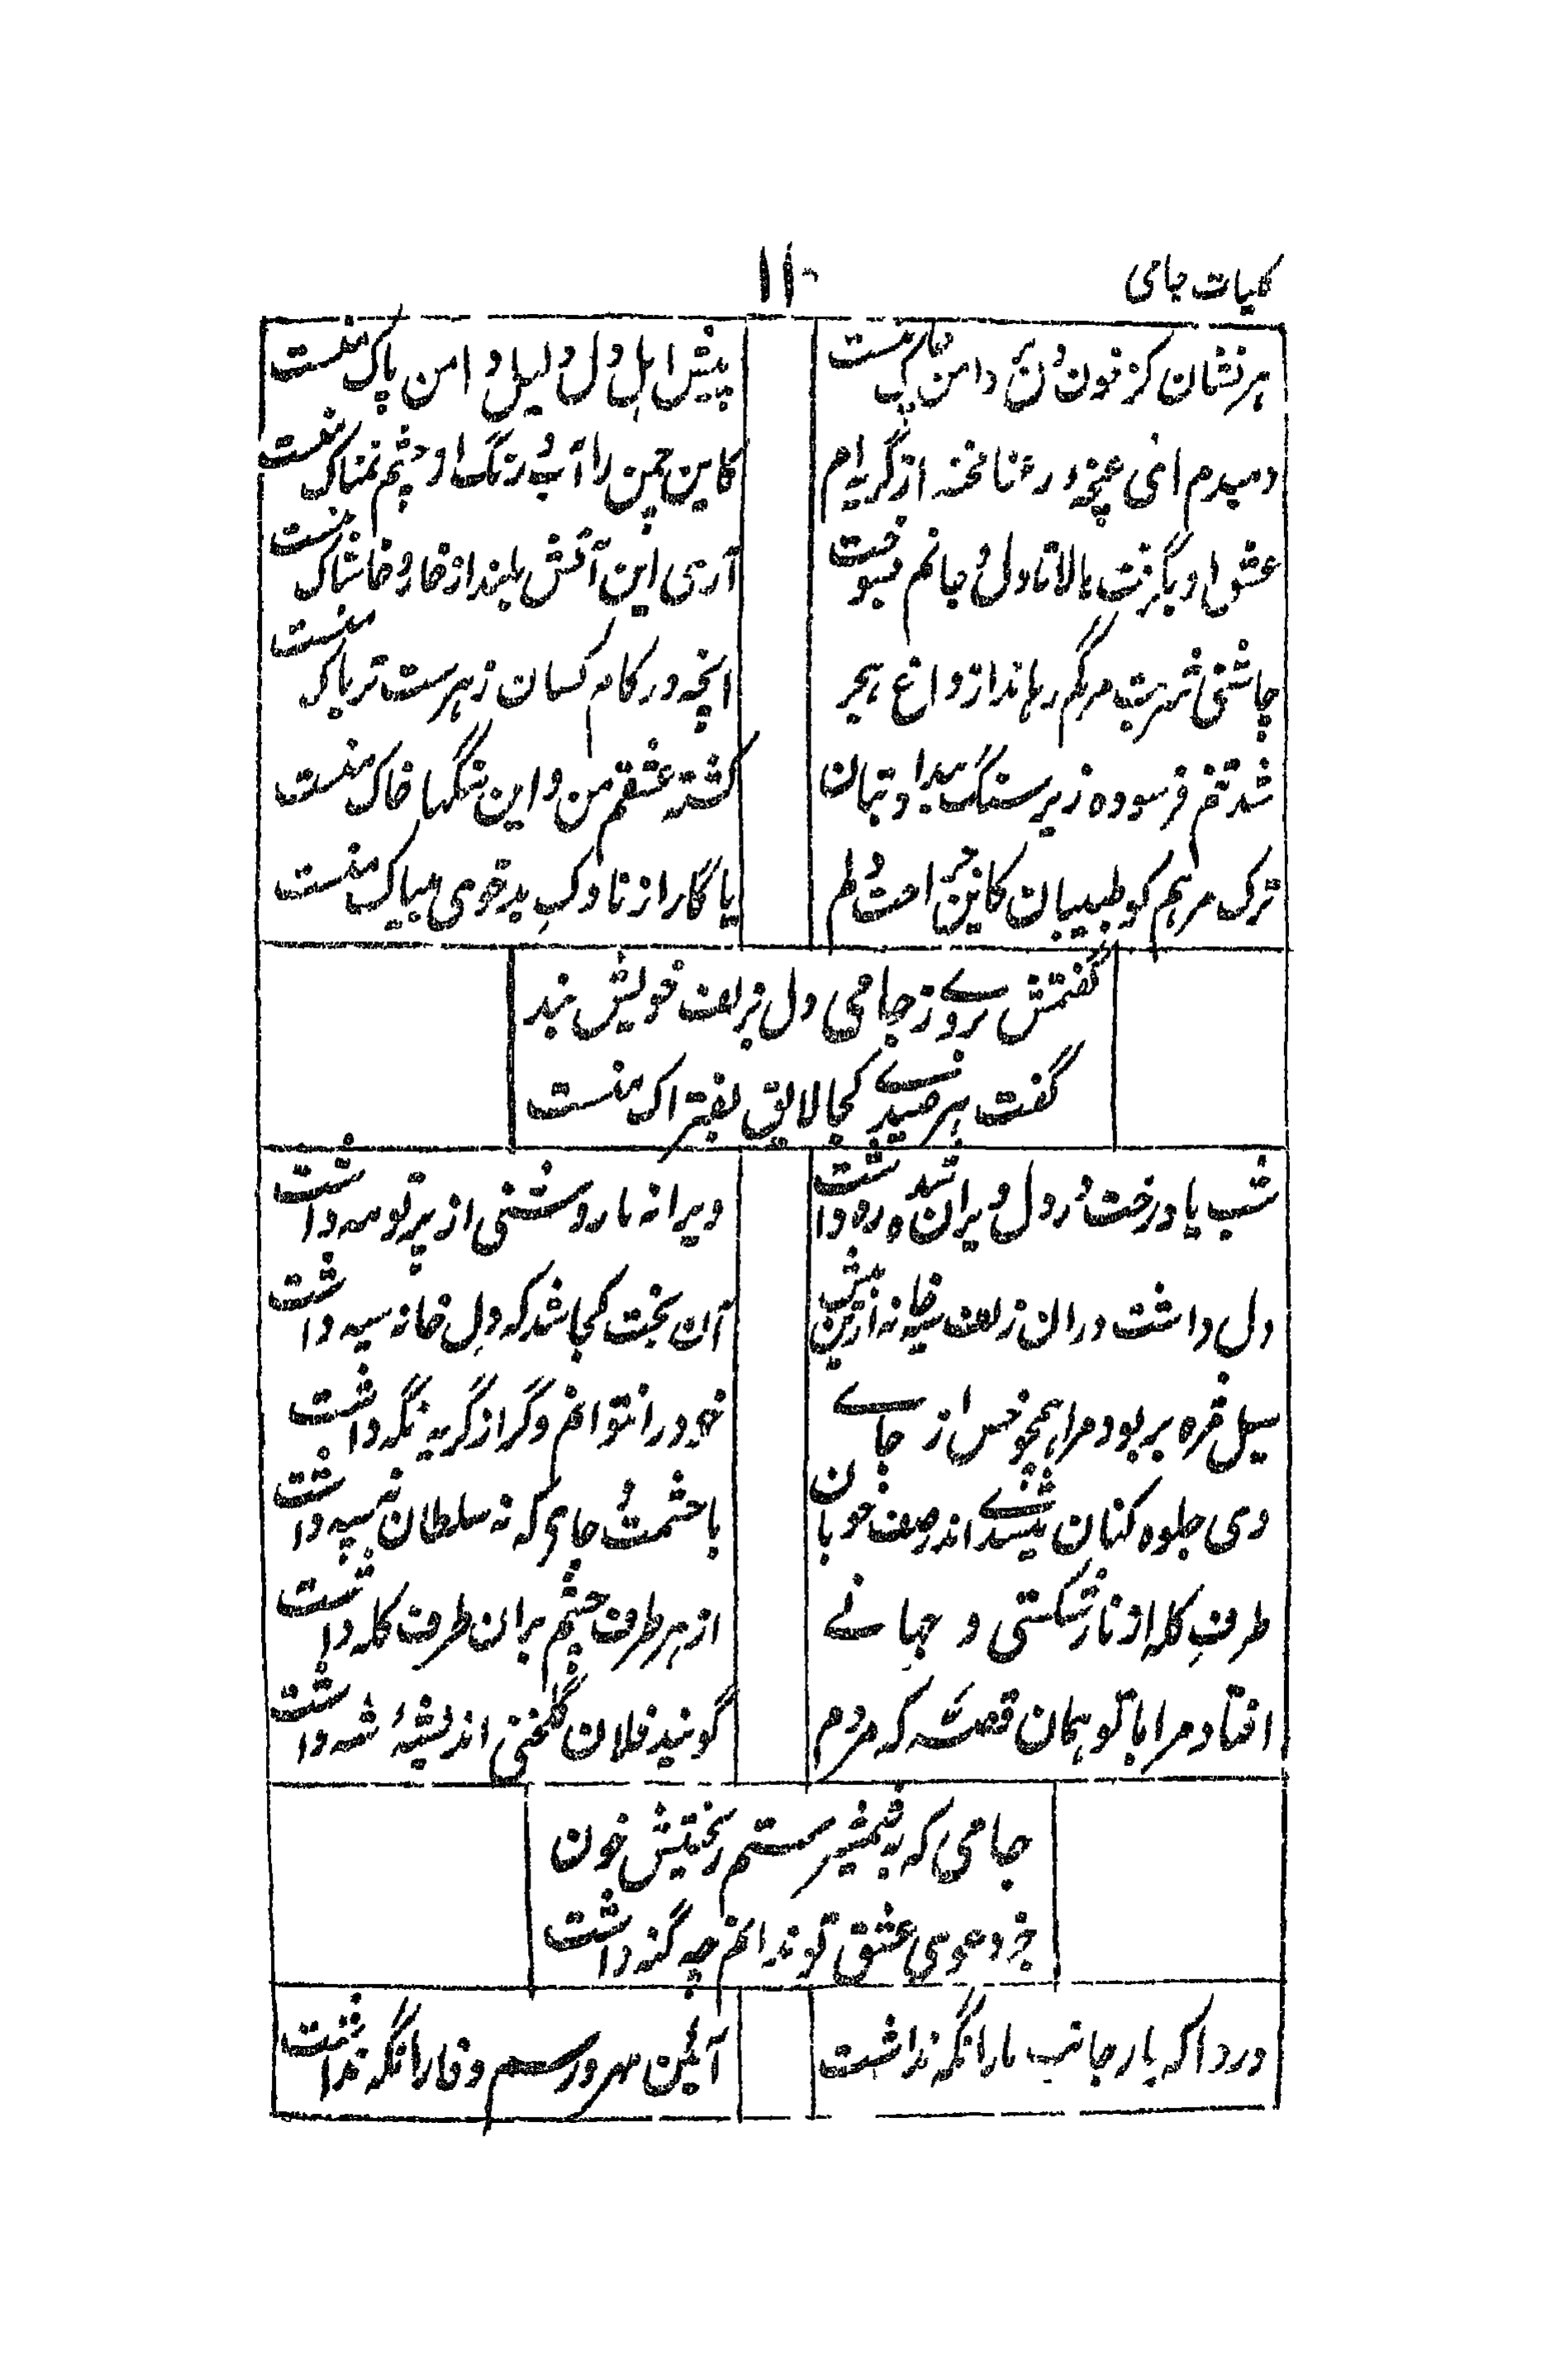 کلیات جامی
۱۱۰
هر نشان کز خون دل بر دامن چاک منست
پیش اهل دل دلیل دامن پاک منست
دمبدم ای غنچهٔ رعنا مخند از گریه ام
کاین چمن را آب و رنگ از چشم نمناک منست
عشق او بگرفت بالا تا دل و جانم بسوخت
آری این آتش بلند از خار و خاشاک منست
چاشنی شربت مرگم رهاند از داغ هجر
انچه در کام کسان زهرست تریاک منست
شد تنم فرسوده زیر سنگ بیداد بتان
کشته عشقم من و این سنگها خاک منست
ترک مرهم کو طبیبان کاین جراحت در دلم
یادگار از ناوک بدخوی بیباک منست
گفتمش روزے ز جامی دل بزلف خویش بند
گفت هر صیدے کجا لایق بفتراک منست
شب یاد رخت در دل ویران شده ره داشت
ویرانه ما روشنی از پرتو مه داشت
دل داشت دران زلف سیه خانه ازین پیش
آن بخت کجا شد که دل خانه سیه داشت
سیل مژه بربود مرا همچو خس از جاے
خود را نتوانم دگر از گریه نگه داشت
دی جلوه کنان میشدے اندر صف خوبان
با حشمت و جاهی که نه سلطان نه سپه داشت
طرف کله از ناز شکستی و جهانے
از هر طرف چشم بران طرف کله داشت
افتاد مرا با تو همان قصه که مردم
گویند فلان گلخنی اندیشهٔ شه داشت
جامی که به شمشیر ستم ریختیش خون
جز دعوی عشق تو ندانم چه گنه داشت
دردا که یار جانب ما را نگه نداشت
آئین مهر و رسم وفا را نگه نداشت